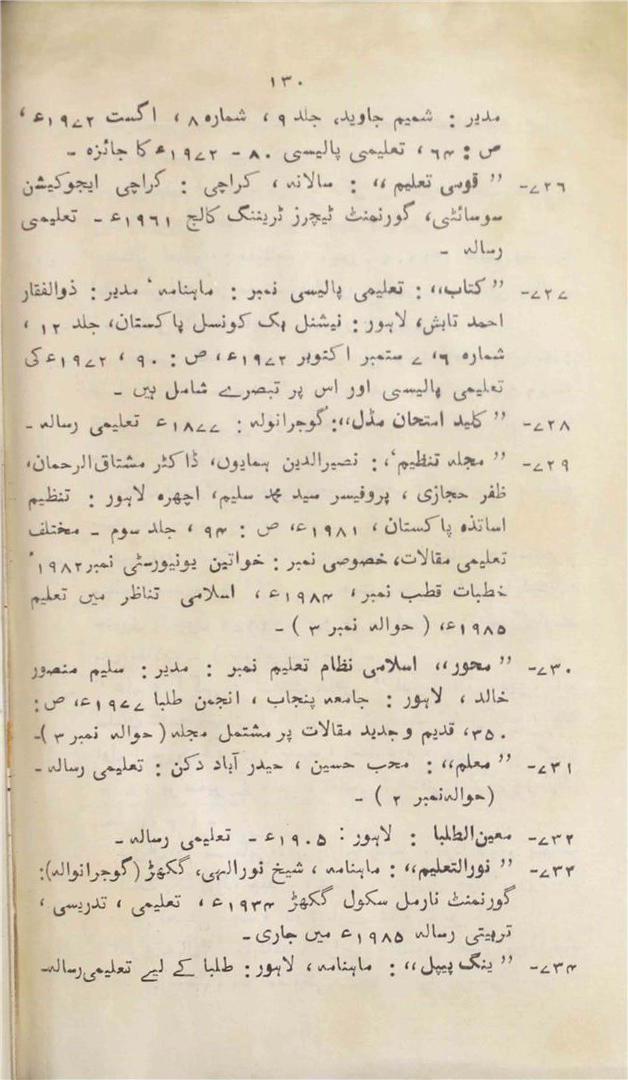 ۱۳۰
مدیر : شمیم جاوید، جلد ۹ ، شمارہ ۸ ، اگست ۱۹۷۲ء ،
ص : ۶۴ ، تعلیمی پالیسی ۸۰ - ۱۹۷۲ء کا جائزہ -
۷۲۶- ” قومی تعلیم ،، : سالانہ ، کراچی : کراچی ایجوکیشن
سوسائٹی، گورنمنٹ ٹیچرز ٹریننگ کالج ۱۹۶۱ء - تعلیمی
رسالہ -
۷۲۷- ” کتاب،، : تعلیمی پالیسی نمبر : ماہنامہ ، مدیر : ذوالفقار
احمد تابش، لاہور : نیشنل بک کونسل پاکستان، جلد ۱۲ ،
شمارہ ۶، ۷ ستمبر اکتوبر ۱۹۷۲ء، ص : ۹۰ ، ۱۹۷۲ء کی
تعلیمی پالیسی اور اس پر تبصرے شامل ہیں -
۷۲۸- ” کلید امتحان مڈل،،: گوجرانوالہ : ۱۸۷۷ء تعلیمی رسالہ -
۷۲۹- ” مجلہ تنظیم ،، : نصیرالدین ہمایوں، ڈاکٹر مشتاق الرحمان،
ظفر حجازی ، پروفیسر سید محمد سلیم، اچھرہ لاہور : تنظیم
اساتذہ پاکستان ، ۱۹۸۱ء، ص : ۹۴ ، جلد سوم - مختلف
تعلیمی مقالات، خصوصی نمبر : خواتین یونیورسٹی نمبر ۱۹۸۲ء
خطبات قطب نمبر، ۱۹۸۴ء ، اسلامی تناظر میں تعلیم
۱۹۸۵ء، ( حوالہ نمبر ۳ ) -
۷۳۰- ” محور،، اسلامی نظام تعلیم نمبر : مدیر : سلیم منصور
خالد ، لاہور : جامعہ پنجاب ، انجمن طلبا ۱۹۷۷ء، ص :
۳۵۰، قدیم و جدید مقالات پر مشتمل مجلہ ( حوالہ نمبر ۳ )-
۷۳۱- ” معلم،، : محب حسین ، حیدر آباد دکن : تعلیمی رسالہ -
(حوالہ نمبر ۲ ) -
۷۳۲- معین الطلبا : لاہور : ۱۹۰۵ء - تعلیمی رسالہ -
۷۳۳- ” نورالتعلیم،، : ماہنامہ ، شیخ نور الہی، گکھڑ (گوجرانوالہ):
گورنمنٹ نارمل سکول گکھڑ ۱۹۳۴ء ، تعلیمی ، تدریسی ،
تربیتی رسالہ ۱۹۸۵ء میں جاری-
۷۳۴- ” ینگ پیپل ،، : ماہنامہ، لاہور : طلبا کے لیے تعلیمی رسالہ-